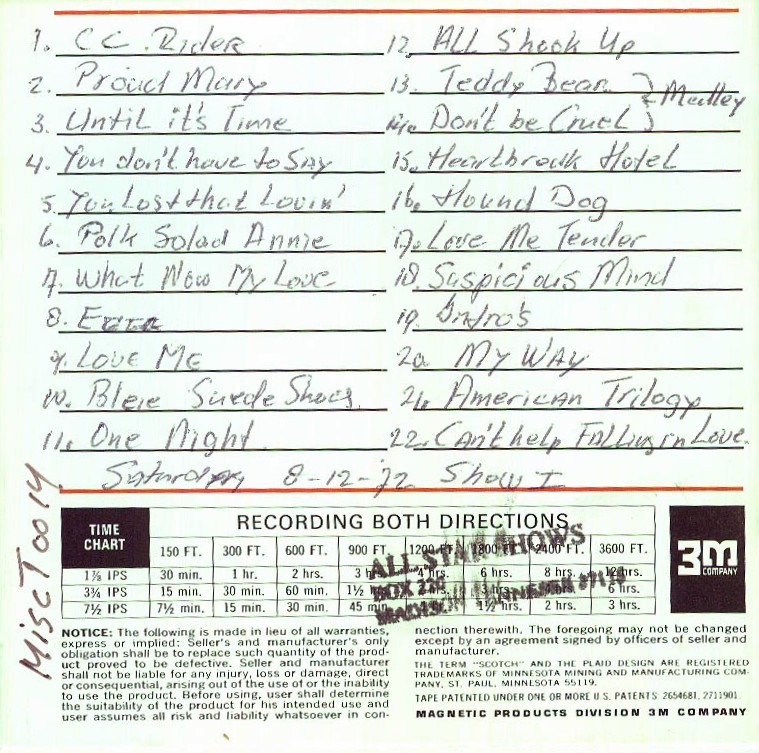 1. CC. Rider
2. Proud Mary
3. Until it's Time
4. You don't have to Say
5. You Lost that Lovin'
6. Polk Salad Annie
7. What Now My Love
8.
9. Love Me
10. Blue Suede Shoes
11. One Night
12. ALL Shook Up
13. Teddy Bear
14. Don't be Cruel
} Medley
15. Heartbreak Hotel
16. Hound Dog
17. Love Me Tender
18. Suspicious Mind
19. Intro's
20 My Way
21. American Trilogy
22. Can't help Falling in Love.
Saturday 8-12-72 Show I
Misc T 0014
TIME CHART
RECORDING BOTH DIRECTIONS
150 FT. 300 FT. 600 FT. 900 FT. 1200 FT. 1800 FT. 2400 FT. 3600 FT.
1⅞ IPS 30 min. 1 hr. 2 hrs. 3 hrs. 4 hrs. 6 hrs. 8 hrs. 12 hrs.
3¾ IPS 15 min. 30 min. 60 min. 1½ hrs. 2 hrs. 6 hrs.
7½ IPS 7½ min. 15 min. 30 min. 45 min. 1½ hrs. 2 hrs. 3 hrs.
ALL STAR SHOWS
BOX
MADISON
3M
COMPANY
NOTICE: The following is made in lieu of all warranties,
express or implied: Seller's and manufacturer's only
obligation shall be to replace such quantity of the prod-
uct proved to be defective. Seller and manufacturer
shall not be liable for any injury, loss or damage, direct
or consequential, arising out of the use of or the inability
to use the product. Before using, user shall determine
the suitability of the product for his intended use and
user assumes all risk and liability whatsoever in con-
nection therewith. The foregoing may not be changed
except by an agreement signed by officers of seller and
manufacturer.
THE TERM "SCOTCH" AND THE PLAID DESIGN ARE REGISTERED
TRADEMARKS OF MINNESOTA MINING AND MANUFACTURING COM-
PANY, ST. PAUL, MINNESOTA 55119.
TAPE PATENTED UNDER ONE OR MORE U.S. PATENTS 2654681, 2711901.
MAGNETIC PRODUCTS DIVISION 3M COMPANY